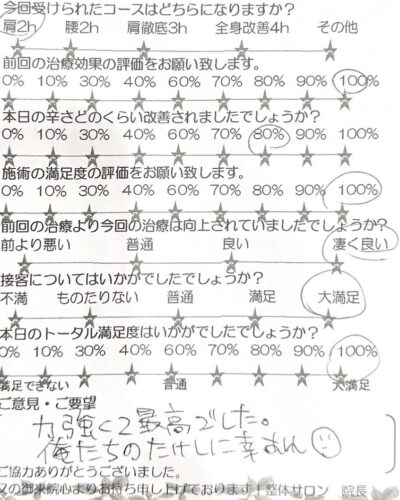 今回受けられたコースはどちらになりますか?
肩2h 腰2h 肩徹底3h 全身改善4h その他
前回の治療効果の評価をお願い致します。
0% 10% 30% 40% 60% 70% 80% 90% 100%
本日の辛さどのくらい改善されましたでしょうか?
0% 10% 30% 40% 60% 70% 80% 90% 100%
施術の満足度の評価をお願い致します。
0% 10% 30% 40% 60% 70% 80% 90% 100%
前回の治療より今回の治療は向上されていましたでしょうか?
前より悪い 普通 良い 凄く良い
接客についてはいかがでしたでしょうか?
不満 ものたりない 普通 満足 大満足
本日のトータル満足度はいかがでしたでしょうか?
0% 10% 30% 40% 60% 70% 80% 90% 100%
満足できない 普通 大満足
ご意見・ご要望
力強くて最高でした。
俺たちのたけしに幸あれ
ご協力ありがとうございました。
又の御来院心よりお待ち申し上げております!整体サロン 院長